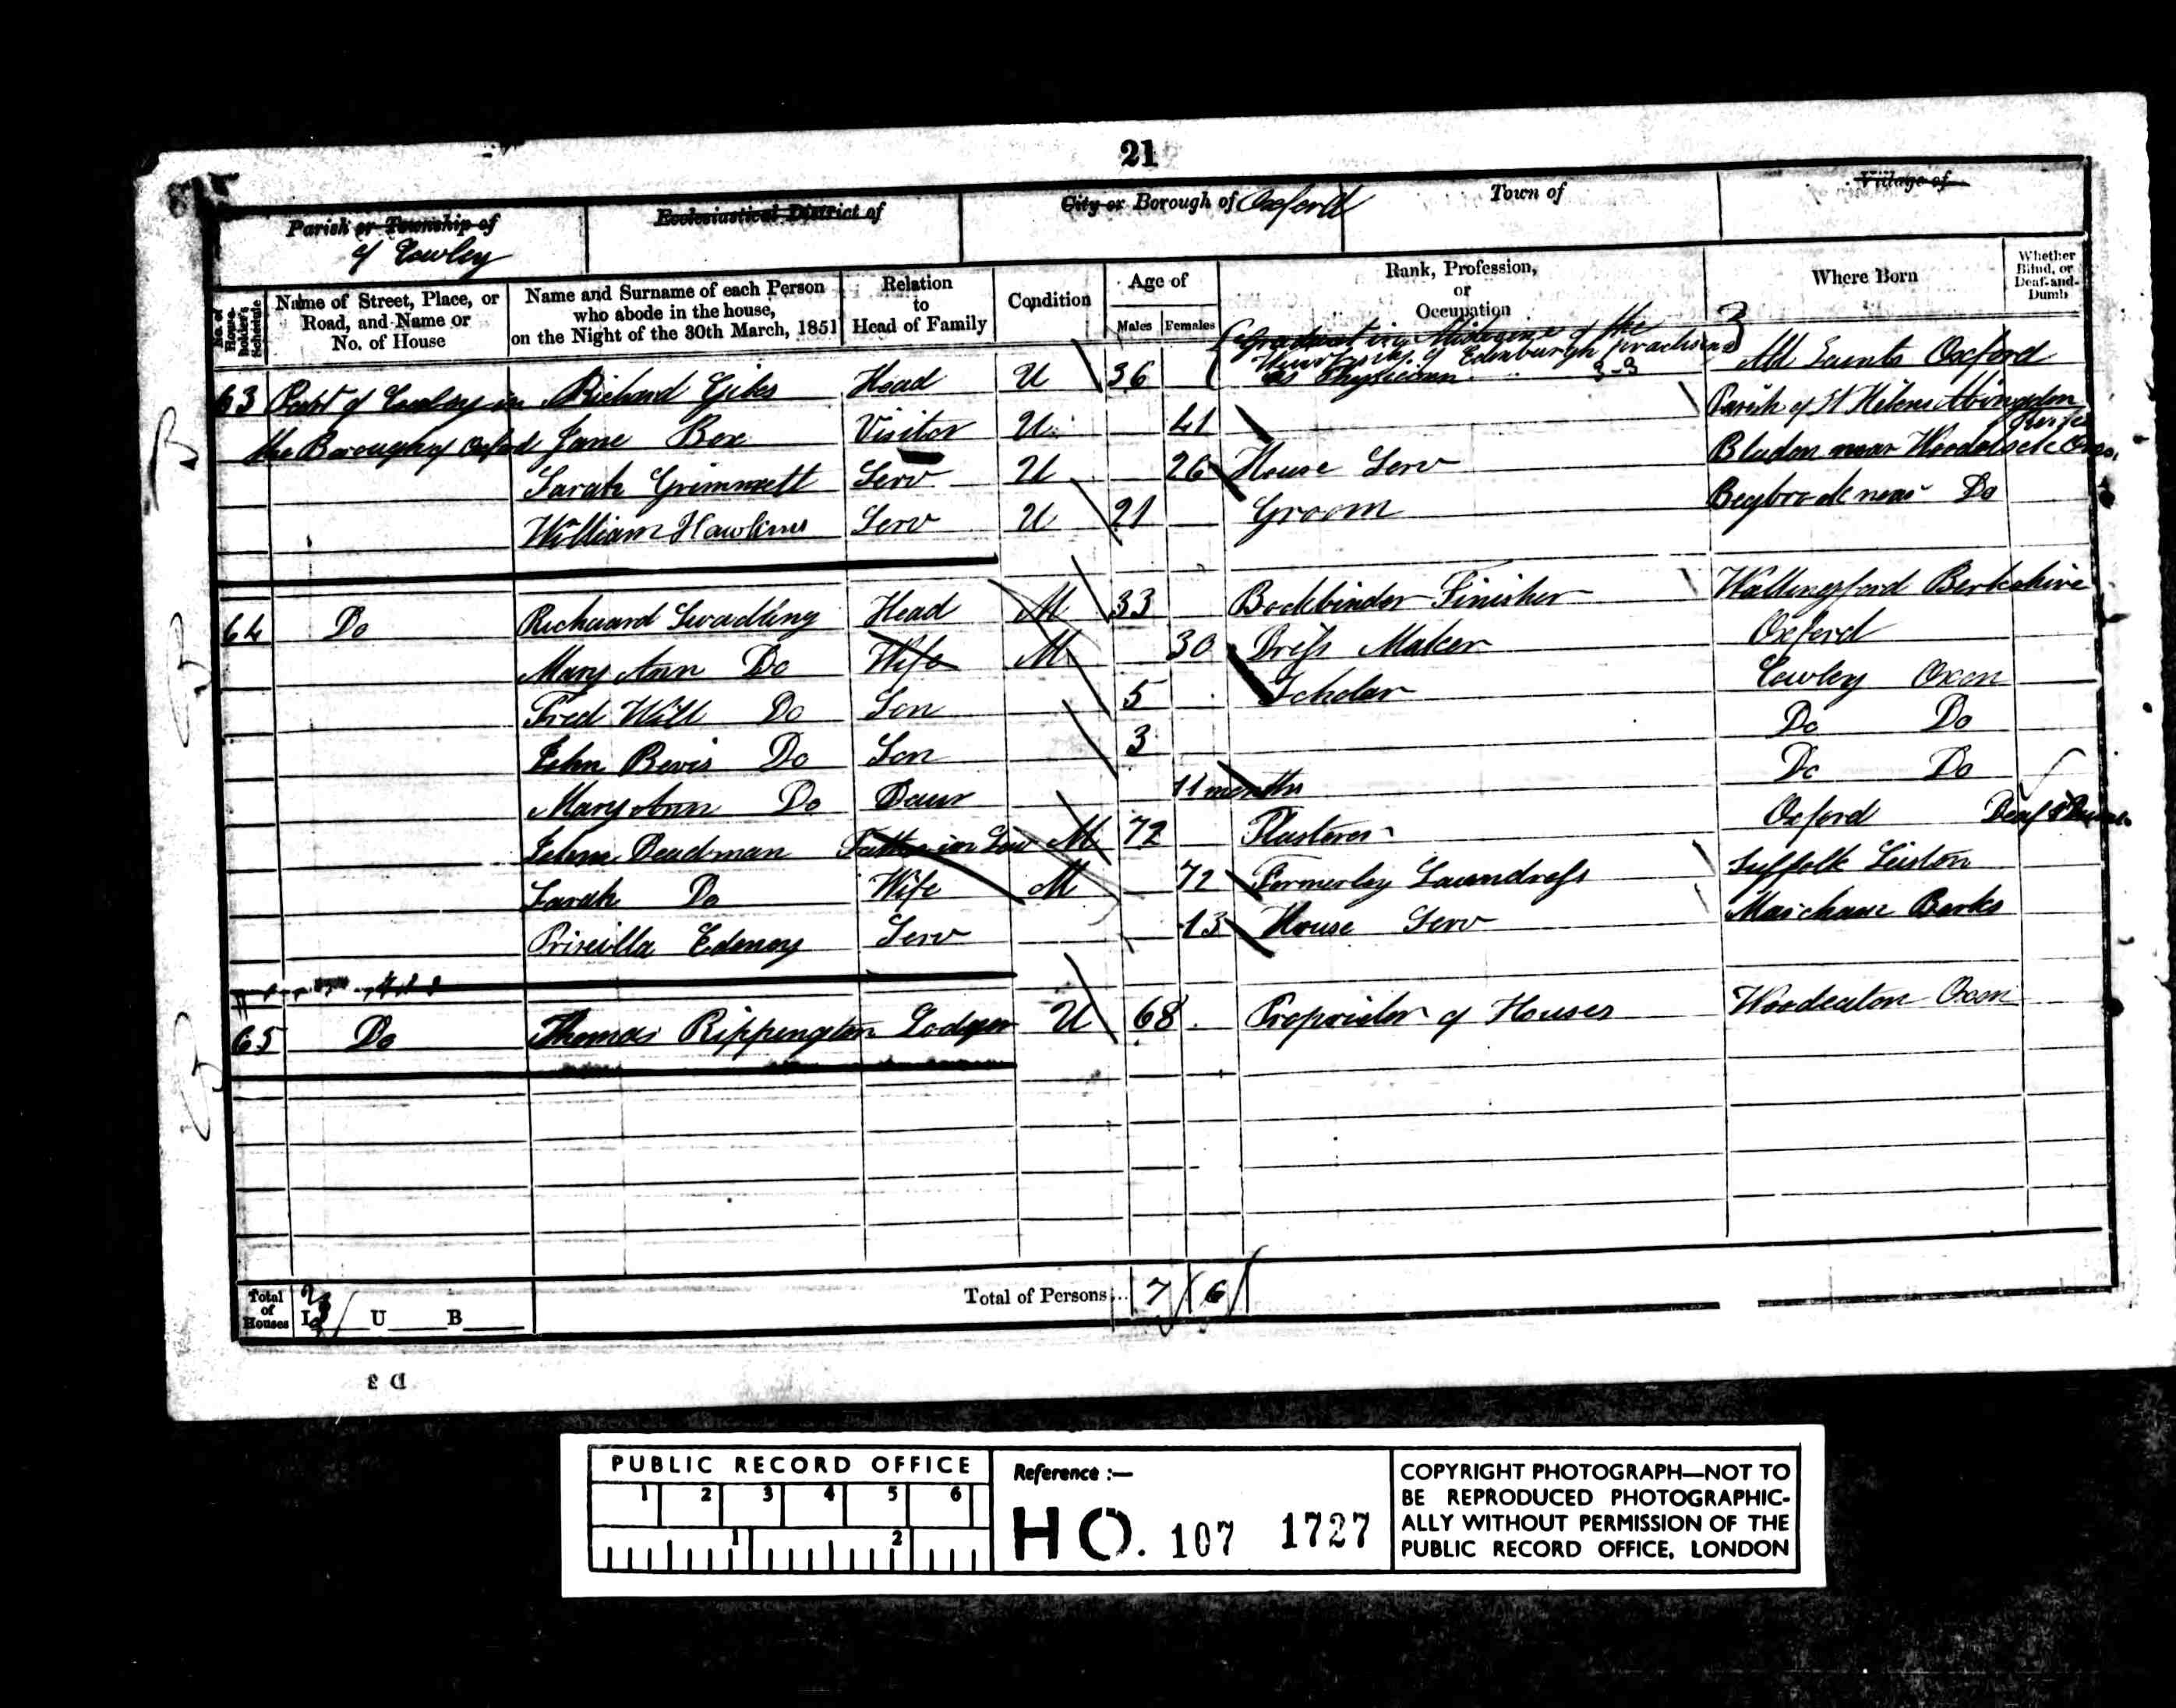 21
Parish or Township of
of Cowley
Ecclesiastical District of
City or Borough of Oxford
Town of
Village of
No. of House-holder's Schedule
Name of Street, Place, or Road, and Name or No. of House
Name and Surname of each Person who abode in the house, on the Night of the 30th March, 1851
Relation to Head of Family
Condition
Age of
Males Females
Rank, Profession, or Occupation
Where Born
Whether Blind, or Deaf-and-Dumb
Graduat in Midecine of the
University of Edinburgh practising
as Physician 3-3
63 Part of Cowley in Richard Gibes Head U 36 All Saints Oxford
the Borough of Oxford Jane Box Visitor U 41 Parish of St Helens Abingdon
Sarah Grimmett Serv U 26 House Serv Bladon near Woodstock Oxon
William Hawkins Serv U 21 Groom Begbrook near Do
64 Do Richaard Swadling Head M 33 Bookbinder Finisher Wallingsford Berkshire
Mary Ann Do Wife M 30 Dress Maker Oxford
Fred Will Do Son 5 Scholar Cowley Oxon
John Bevis Do Son 3 Do Do
Mary Ann Do Daur 11 months Do Do
John Deadman Father in Law M 72 Plasterer Oxford Deaf & Dumb
Sarah Do Wife M 72 Formerley Laundress Suffolk Leiston
Priscilla Edenoy Serv 13 House Serv Marcham Berks
65 Do Thomas Rippington Lodger U 68 Proprietor of Houses Woodeaton Oxon
Total of Houses I U B
Total of Persons... 7 6
D 3
PUBLIC RECORD OFFICE
1 2 3 4 5 6
1 2
Reference :—
HO. 107 1727
COPYRIGHT PHOTOGRAPH—NOT TO
BE REPRODUCED PHOTOGRAPHIC-
ALLY WITHOUT PERMISSION OF THE
PUBLIC RECORD OFFICE, LONDON